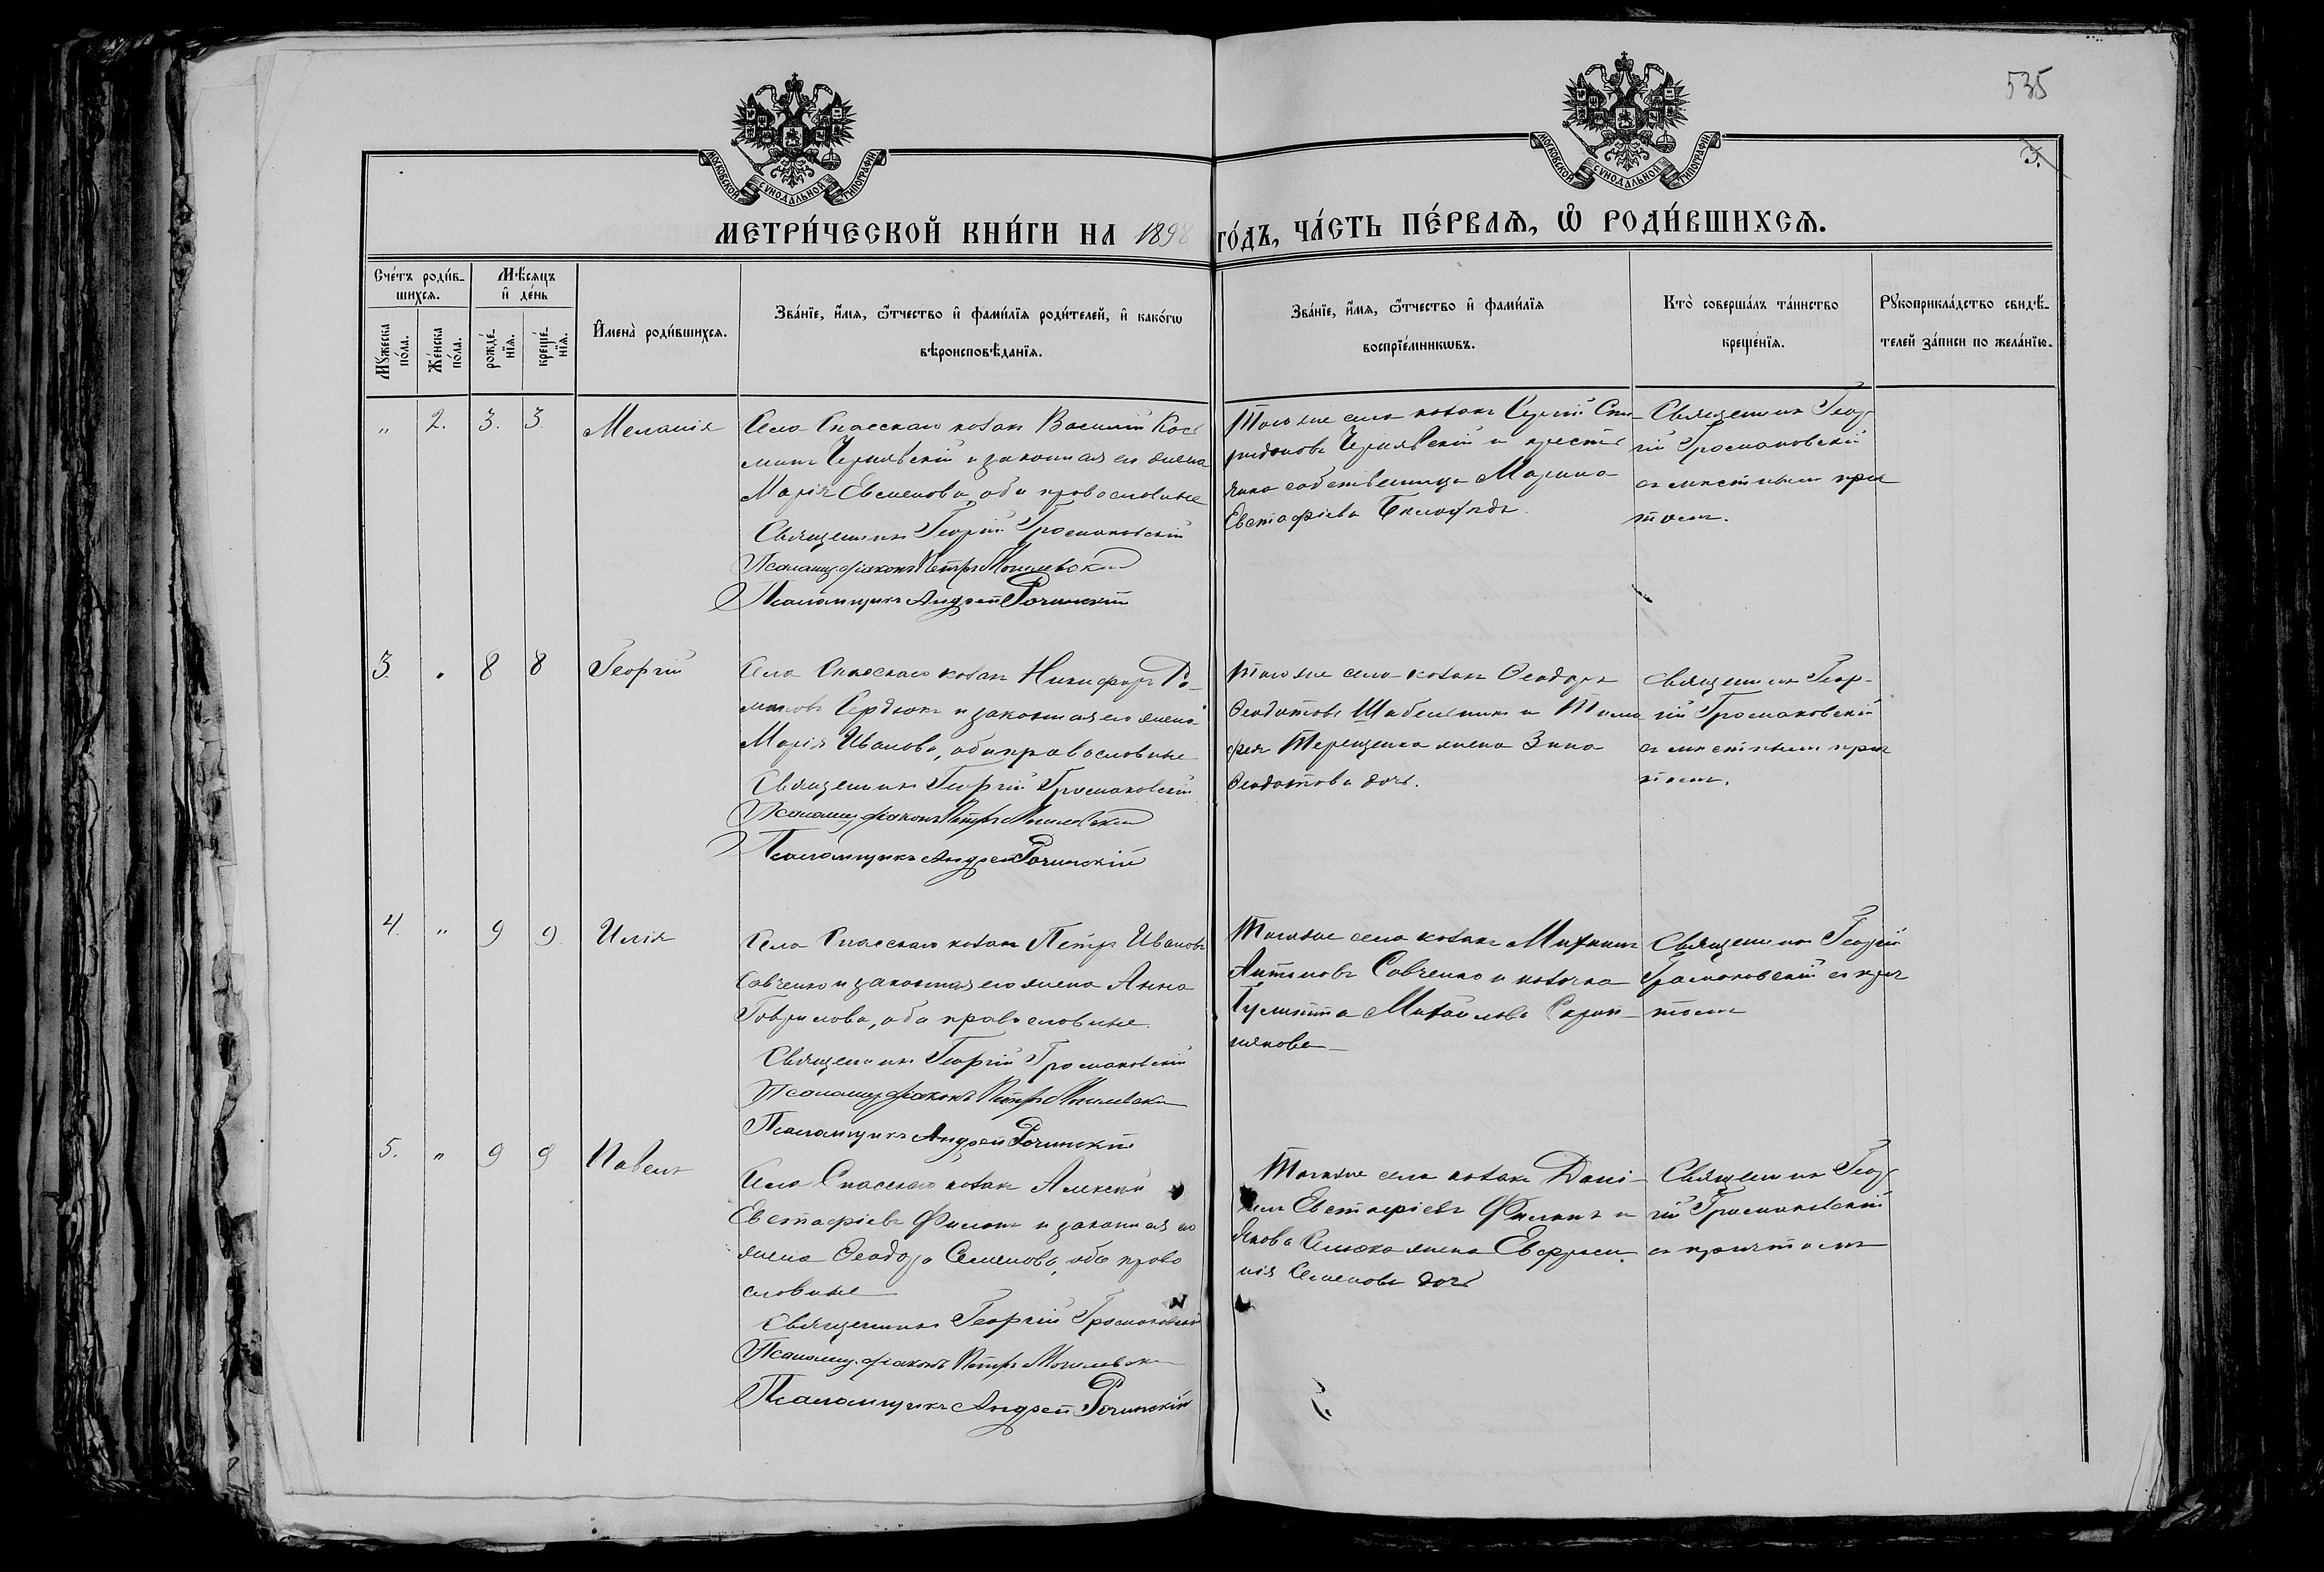 535
3.
МОСКОВСКОЙ СѴНОДАЛЬНОЙ ТИПОГРАФІИ
МОСКОВСКОЙ СѴНОДАЛЬНОЙ ТИПОГРАФІИ
МЕТРИ́ЧЕСКОЙ КНИ́ГИ НА 1898 ГО́ДЪ, ЧА́СТЬ ПЕ́РВАѦ, Ѡ҆ РОДИ́ВШИХСѦ.
Сче́тъ роди́в-
шихсѧ.
Мꙋ́жеска по́ла.
Же́нска по́ла.
Мѣ́сѧцъ
и҆ де́нь
рожде́-
нїѧ.
креще́-
нїѧ.
И҆мена̀ роди́вшихсѧ.
Зва́нїе, и҆́мѧ, ѻ҆́тчество и҆ фами́лїѧ роди́телей, и҆ како́гѡ
вѣроисповѣ́данїѧ.
Зва́нїе, и҆́мѧ, ѻ҆́тчество и҆ фами́лїѧ
воспрїе́мникѡвъ.
Кто̀ соверша́лъ та́инство
креще́нїѧ.
Рꙋкоприкла́дство свидѣ́-
телей за́писи по жела́нїю.
„ 2. 3. 3. Меланія
Села Спасскаго козакъ Василій Кось
минъ Чернявскій и законная его жена
Марія Евсеевова, оба православные
Священникъ Георгій Громаковскій
Псаломщ. діаконъ Петръ Могилевскій
Псаломщикъ Андрей Рочинскій
Того же села козакъ Сергій Спи-
ридоновъ Чернявскій и кресть
янка собственница Марина
Евстафіева
Священникъ Геор
гій Громаковскій
съ мѣстнымъ прич
томъ.
3. „ 8 8 Георгій
Села Спасскаго козакъ Никифоръ Ро-
мановъ Сердюкъ и законная его жена
Марія Иванова, оба православные
Священникъ Георгій Громаковскій
Псаломщ. діаконъ Петръ Могилевскій
Псаломщикъ Андрей Рочинскій
Того же села козакъ Ѳеодоръ
Ѳеодотовъ Шабельникъ и Тимо
фея Терещенка жена Зина
Ѳеодотова дочь.
Священникъ Геор-
гій Громаковскій
съ мѣстнымъ прич
томъ.
4. „ 9 9. Илія
Села Спасскаго козакъ Петръ Ивановъ
Савченко и законная его жена Анна
Гаврилова, оба православные.
Священникъ Георгій Громаковскій
Псаломщ. діаконъ Петръ Могилевскій
Псаломщикъ Андрей Рочинскій
Того же села козакъ Михаилъ
Антоновъ Савченко и козачка
Гулитта Михайлова
Священникъ Георгій
Громаковскій съ прич
томъ
5. „ 9 9 Павелъ
Села Спасскаго козакъ Алексій
Евстафіевъ Филонъ и законная его
жена Ѳеодора Семенова, оба право
славные
Священникъ Георгій Громаковскій
Псаломщ. діаконъ Петръ Могилевскій
Псаломщикъ Андрей Рочинскій
Того же села козакъ Дані-
илъ Евстафіевъ Филонъ и
Якова жена Евфроси
нія Семенова дочь
Священникъ Геор
гій Громаковскій
съ причтомъ